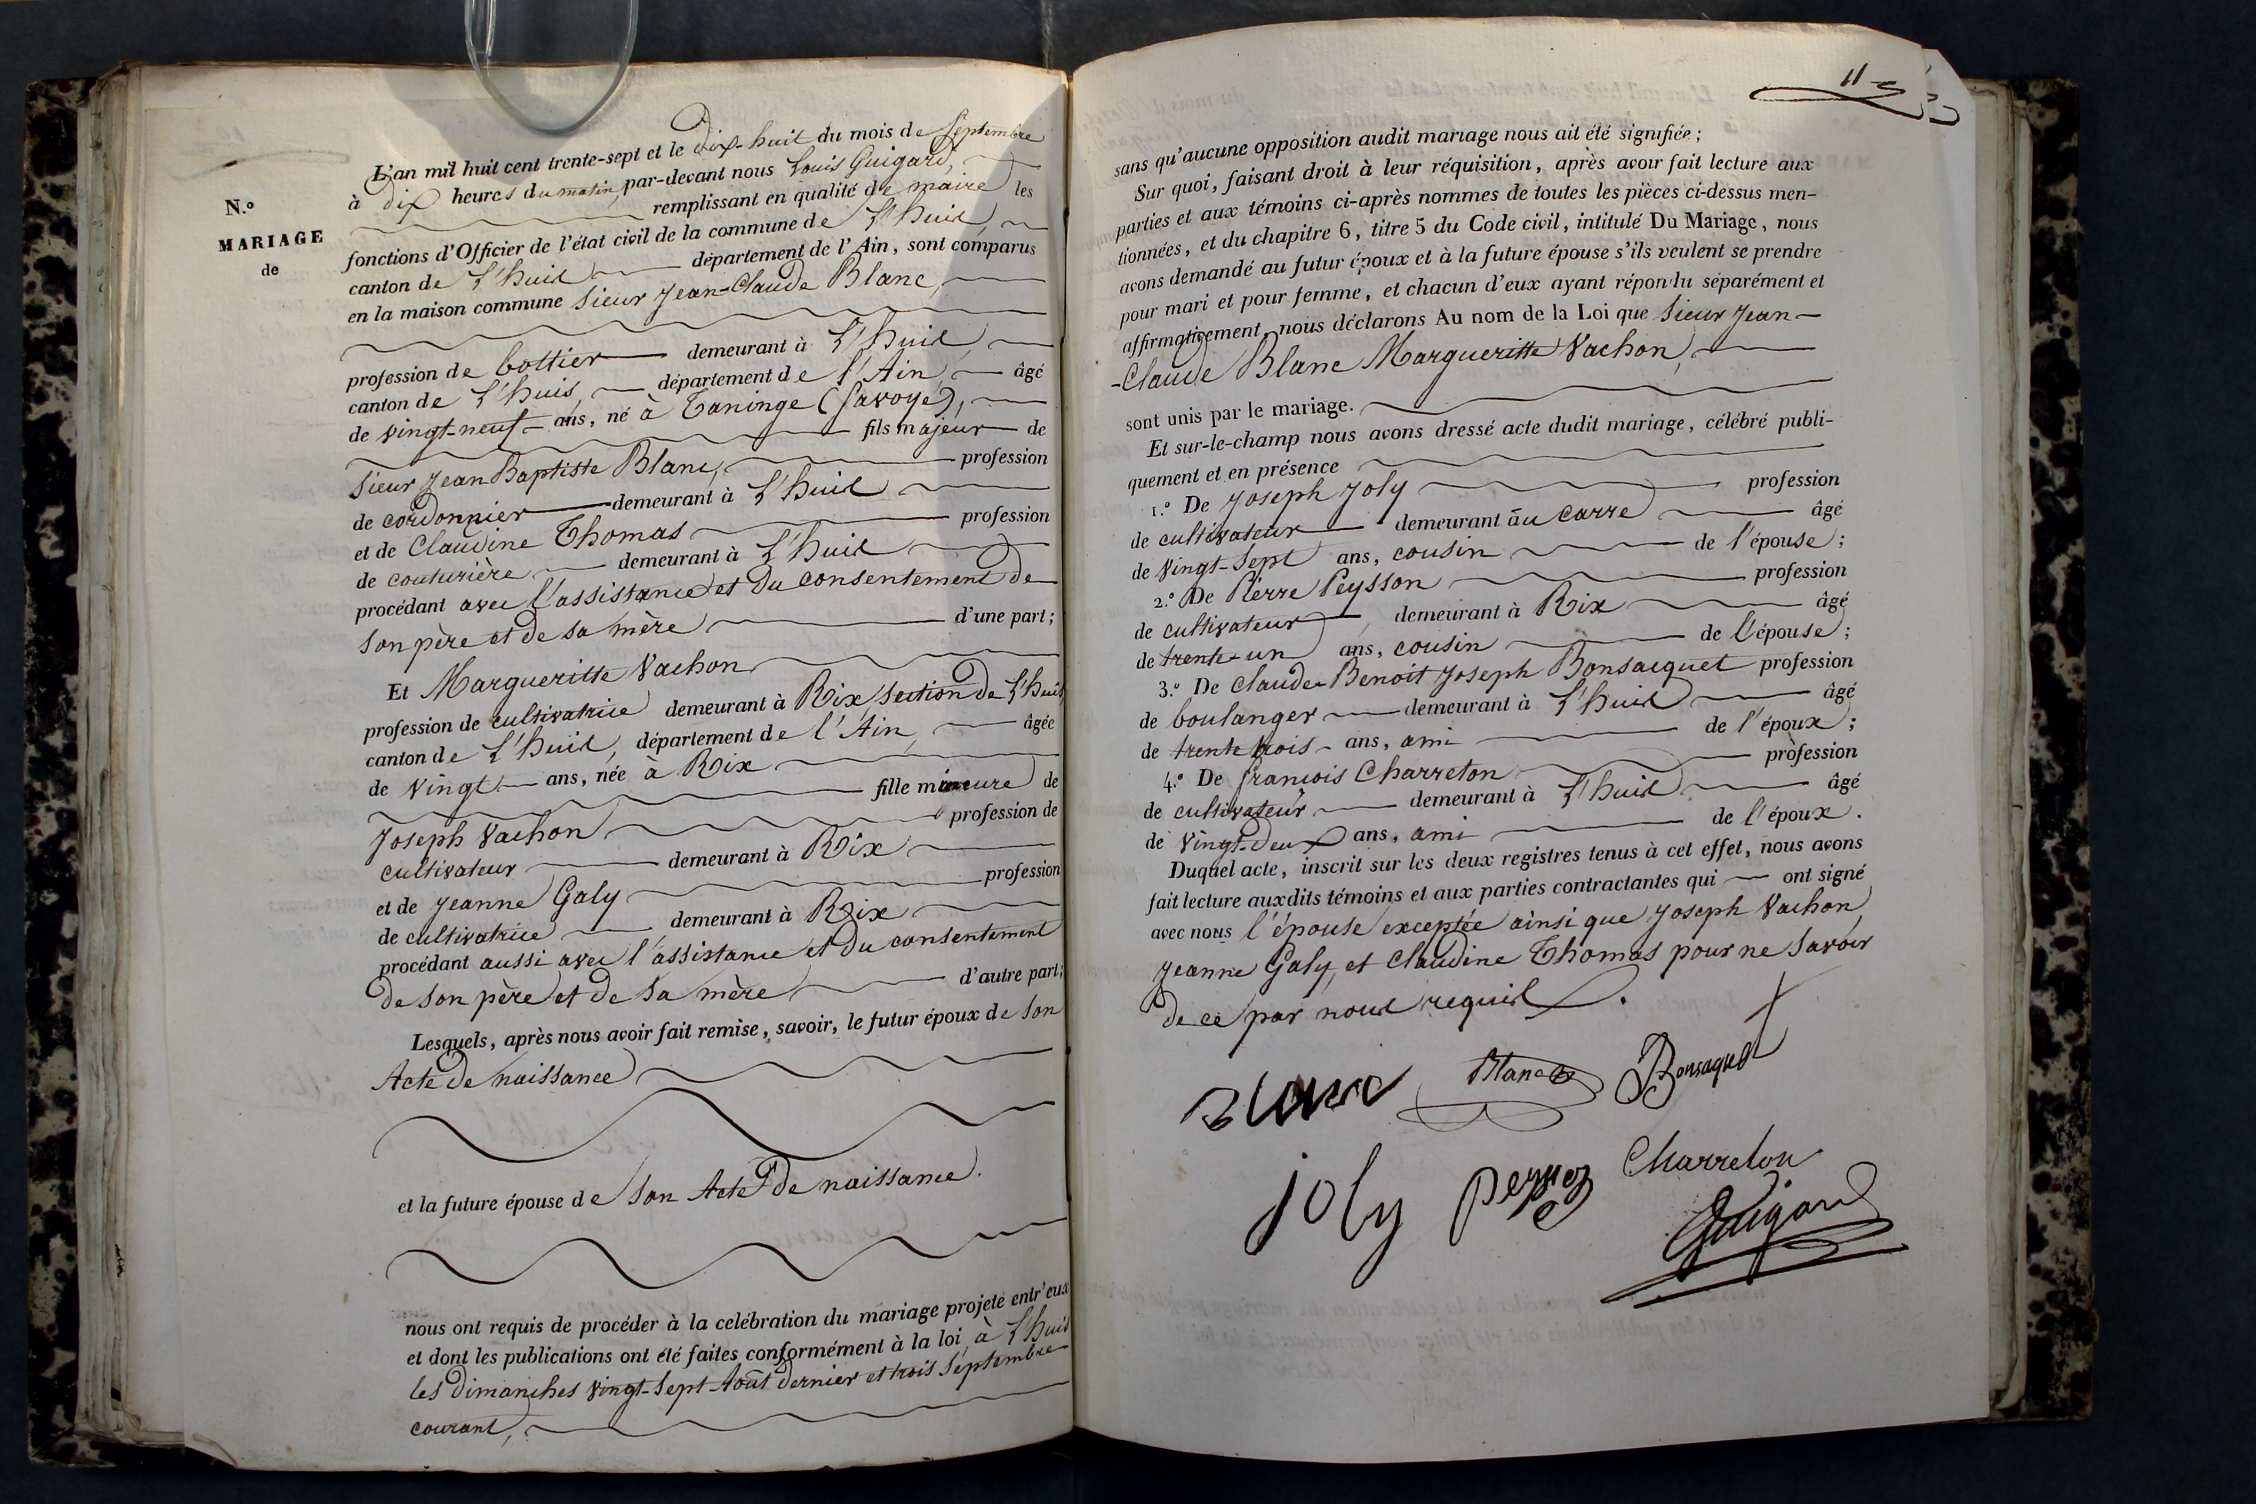 N.º
MARIAGE
de
L'an mil huit cent trente-sept et le dix-huit du mois de Septembre
à dix heures du matin, par-devant nous Louis Guigard,
remplissant en qualité de maire les
fonctions d'Officier de l'état civil de la commune de L'huis,
canton de L'huis département de l'Ain, sont comparus
en la maison commune Sieur Jean-Claude Blanc,
profession de bottier demeurant à L'huis,
canton de L'huis, département de l'Ain, âgé
de vingt-neuf ans, né à Taninge (Savoye),
fils majeur de
Sieur Jean Baptiste Blanc, profession
de cordonnier demeurant à L'huis
et de Claudine Thomas profession
de couturière demeurant à L'huis
procédant avec l'assistance et du consentement de
son père et de sa mère d'une part;
Et Margueritte Vachon
profession de cultivatrice demeurant à Rix, section de L'huis
canton de L'huis, département de l'Ain, âgée
de vingt ans, née à Rix
fille mineure de
Joseph Vachon profession de
cultivateur demeurant à Rix
et de Jeanne Galy profession
de cultivatrice demeurant à Rix
procédant aussi avec l'assistance et du consentement
de son père et de sa mère d'autre part;
Lesquels, après nous avoir fait remise, savoir, le futur époux de son
Acte de naissance
et la future épouse de son Acte de naissance.
nous ont requis de procéder à la celébration du mariage projeté entr'eux
et dont les publications ont été faites conformément à la loi, à L'huis
les dimanches vingt-sept Août dernier et trois Septembre
courant,
sans qu'aucune opposition audit mariage nous ait été signifiée;
Sur quoi, faisant droit à leur réquisition, après avoir fait lecture aux
parties et aux témoins ci-après nommés de toutes les pièces ci-dessus men-
tionnées, et du chapitre 6, titre 5 du Code civil, intitulé Du Mariage, nous
avons demandé au futur époux et à la future épouse s'ils veulent se prendre
pour mari et pour femme, et chacun d'eux ayant répondu séparément et
affirmativement, nous déclarons Au nom de la Loi que Sieur Jean-
-Claude Blanc Margueritte Vachon,
sont unis par le mariage.
Et sur-le-champ nous avons dressé acte dudit mariage, célébré publi-
quement et en présence
1.º De Joseph Joly profession
de cultivateur demeurant au Carre âgé
de vingt-sept ans, cousin de l'épouse;
2.º De Pierre Peysson profession
de cultivateur, demeurant à Rix âgé
de trente-un ans, cousin de l'épouse;
3.º De Claude-Benoit Joseph Bonsacquet profession
de boulanger demeurant à L'huis âgé
de trente trois ans, ami de l'époux;
4.º De françois Charreton profession
de cultivateur demeurant à L'huis âgé
de vingt-deux ans, ami de l'époux.
Duquel acte, inscrit sur les deux registres tenus à cet effet, nous avons
fait lecture auxdits témoins et aux parties contractantes qui ont signé
avec nous l'épouse exceptée ainsi que Joseph Vachon,
Jeanne Galy, et Claudine Thomas pour ne savoir
de ce par nous requis.
Blanc Blanc Bonsaquet
joly Charreton
Guigard